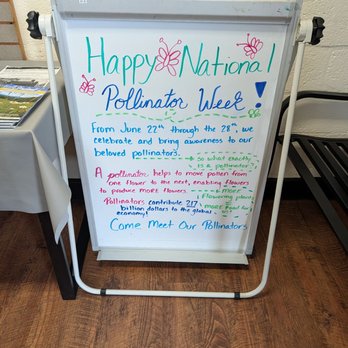 Happy National
Pollinator Week!
From June 22th through the 28th, we
celebrate and bring awareness to our
beloved pollinators.
→ so what exactly
is a pollinator?
A pollinator helps to move pollen from
one flower to the next, enabling flowers
to produce more flowers.
→ more
flowering plants
more food for
Pollinators contribute 217
billion dollars to the global
economy!
Come Meet Our Pollinators